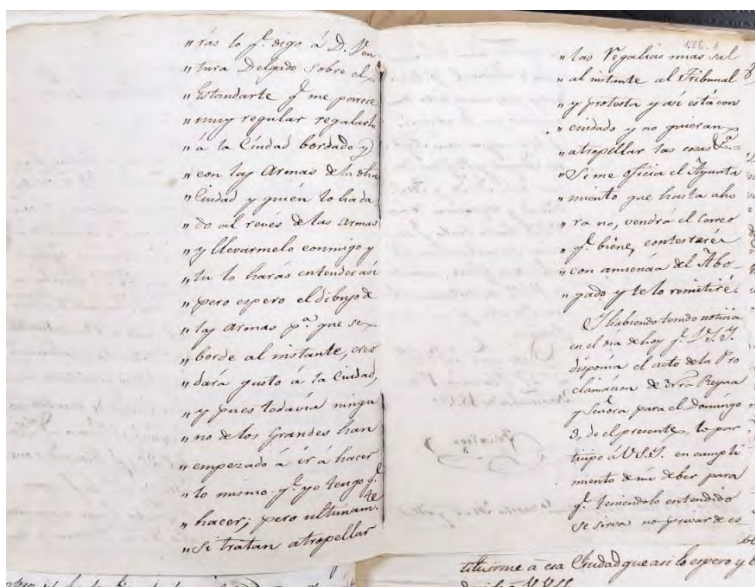 "rás lo q.e digo á D. Ven
"tura Delgado sobre el
"Estandarte q.e me parece
"muy regular regalarlo
"á la Ciudad bordado
"con las Armas de la dha
"Ciudad y quien lo ha da
"do al revés de las Armas
"y llevarmelo conmigo y
"tu lo harás entender asi
"pero espero el dibujo de
"las Armas p.a que se
"borde al instante, creo
"dará gusto á la Ciudad,
"y pues todavia ningu
"no de los Grandes han
"empezado á ir á hacer
"lo mismo q.e yo tengo q.e
"hacer; pero ultimam.te
"si tratan atropellar
126.
"las Regalias mias sal
"al instante al Tribunal
"y protesta y asi está con
"cuidado y no quieran
"atropellar las cosas
"Si me oficia el Ayunta
"miento que hasta aho
"ra no, vendrá el Correo
"q.e biene, contestaré
"con anuencia del Abo-
"gado y te lo remitiré.
Y habiendo tenido noticia
en el dia de hoy q.e V.S.Y.
disponia el acto de la Pro
clamacion de Ntra Reyna
y Señora para el Domingo
3, de el presente, lo par
ticipo á V.S.Y. en cumpli
miento de mi deber para
q.e teniendolo entendido
se sirva no privar de es
tituirme á esa Ciudad que asi lo espero y